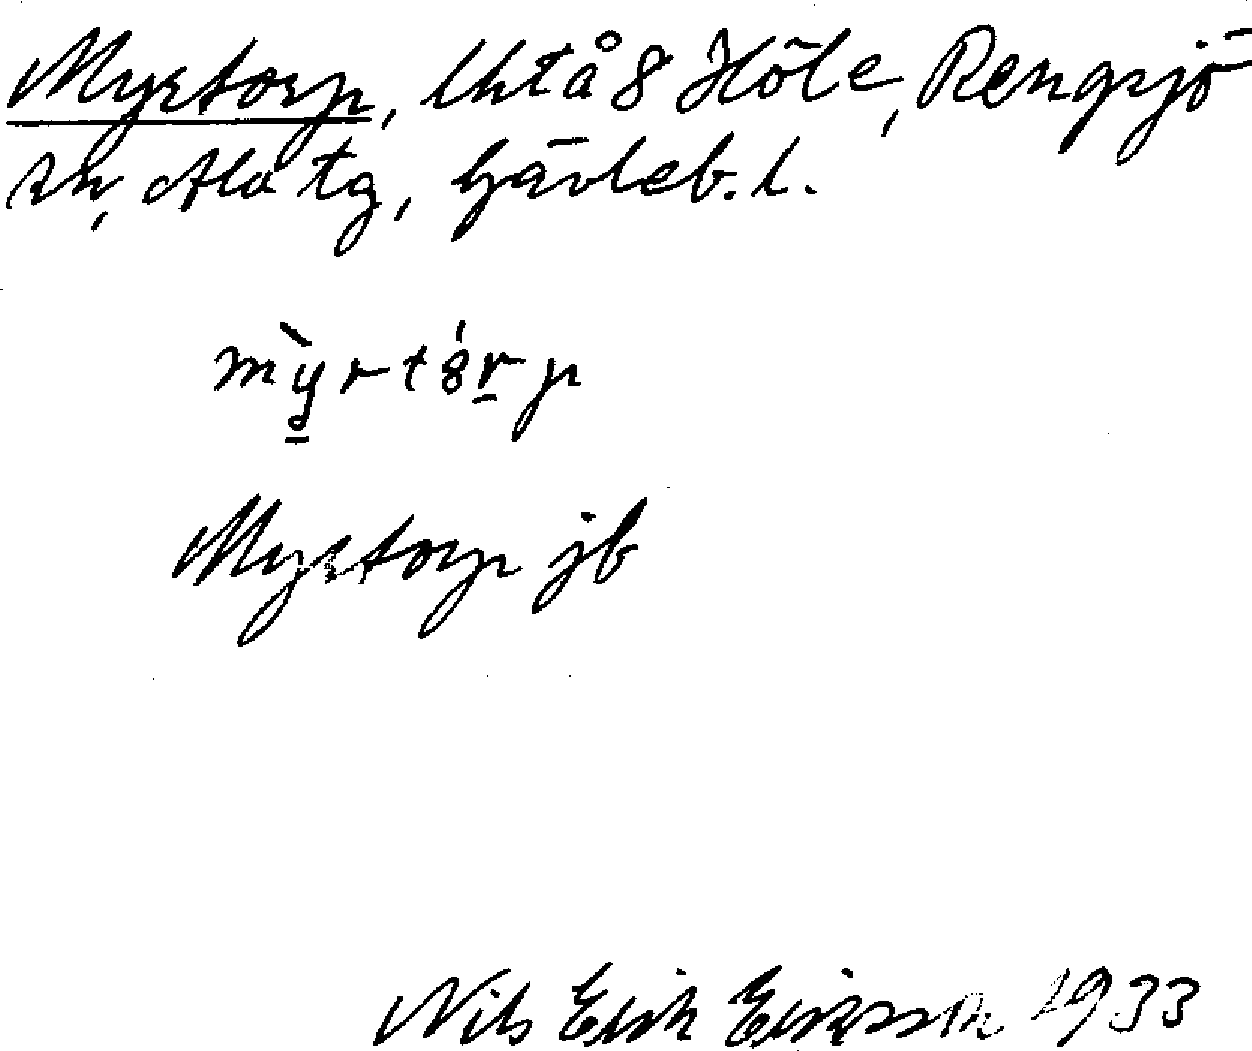 Myrtorp, lhtå 8 Höle, Rengsjö
sn, Ala tg, Gävleb. l.
mỳrtórp
Myrtorp jb
Nils Erik Eriksson 1933